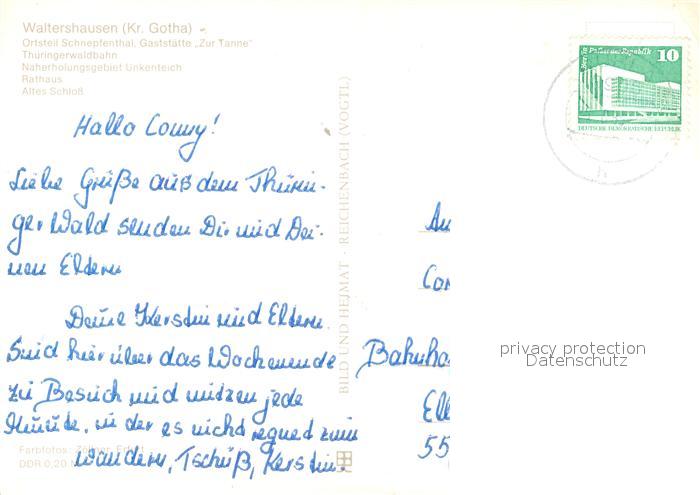 Waltershausen (Kr. Gotha)
Ortsteil Schnepfenthal, Gaststätte „Zur Tanne"
Thüringerwaldbahn
Naherholungsgebiet Unkenteich
Rathaus
Altes Schloß
Hallo Conny!
Liebe Grüße aus dem Thürin-
ger Wald senden Dir und Dei-
nen Eltern
Deine Kerstin und Eltern.
Sind hier über das Wochenende
zu Besuch und nutzen jede
Minute, in der es nicht regnet zum
Wandern, Tschüß, Kerstin.
Farbfotos: Zöllner, Erfurt
DDR 0,20
BILD UND HEIMAT · REICHENBACH (VOGTL)
Berlin Palast der Republik 10
DEUTSCHE DEMOKRATISCHE REPUBLIK
An
Con
Bahnho
Ell
55
privacy protection
Datenschutz